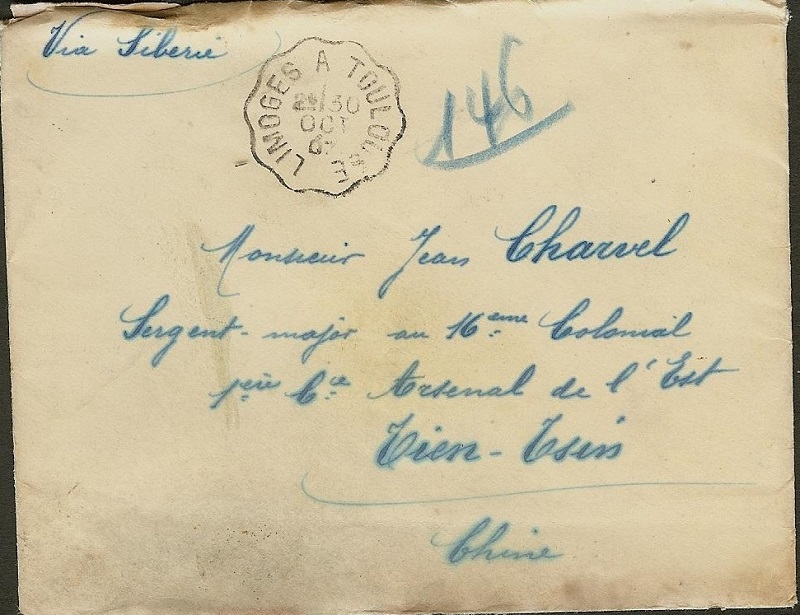 Via Siberie
LIMOGES A TOULOUSE
30
OCT
146
Monsieur Jean Charvel
Sergent-major au 16.eme Colonial
1.ère Cie Arsenal de l'Est
Tien-Tsin
Chine